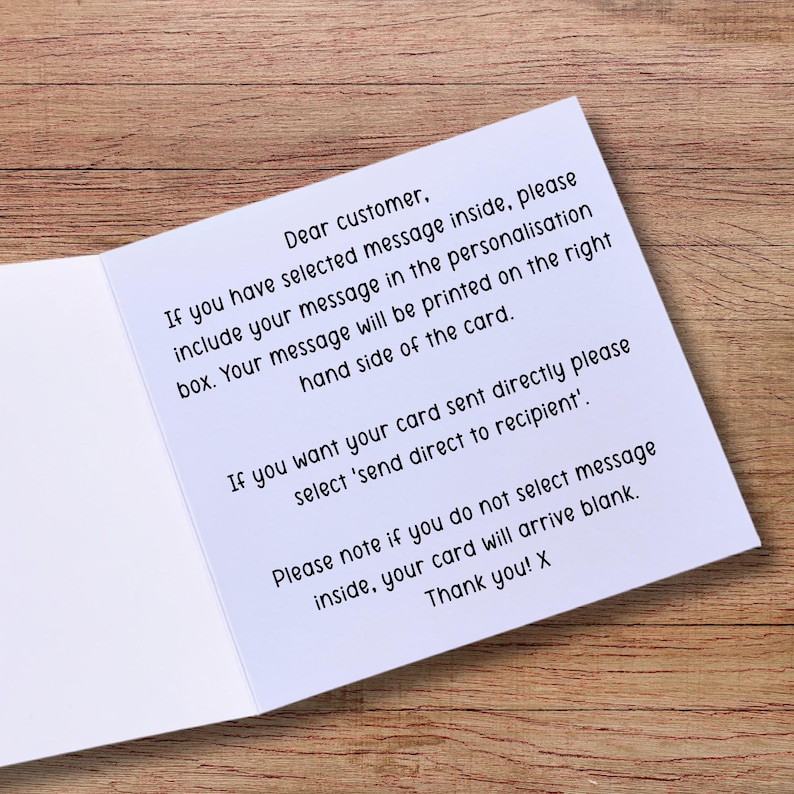 Dear customer,
If you have selected message inside, please
include your message in the personalisation
box. Your message will be printed on the right
hand side of the card.
If you want your card sent directly please
select 'send direct to recipient'.
Please note if you do not select message
inside, your card will arrive blank.
Thank you! X